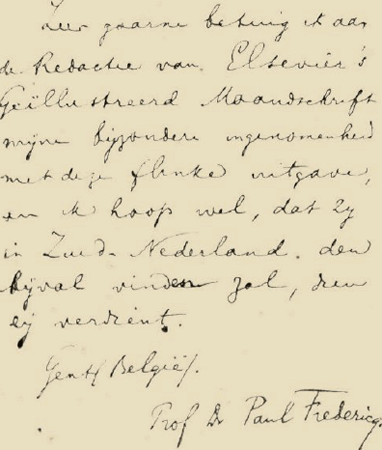 Zeer gaarne betuig ik aan
de Redactie van Elsevier's
Geïllustreerd Maandschrift
mijne bijzondere ingenomenheid
met deze flinke uitgave,
en ik hoop wel, dat zij
in Zuid-Nederland den
bijval vinden zal, dien
zij verdient.
Gent (België).
Prof Dr Paul Fredericq.